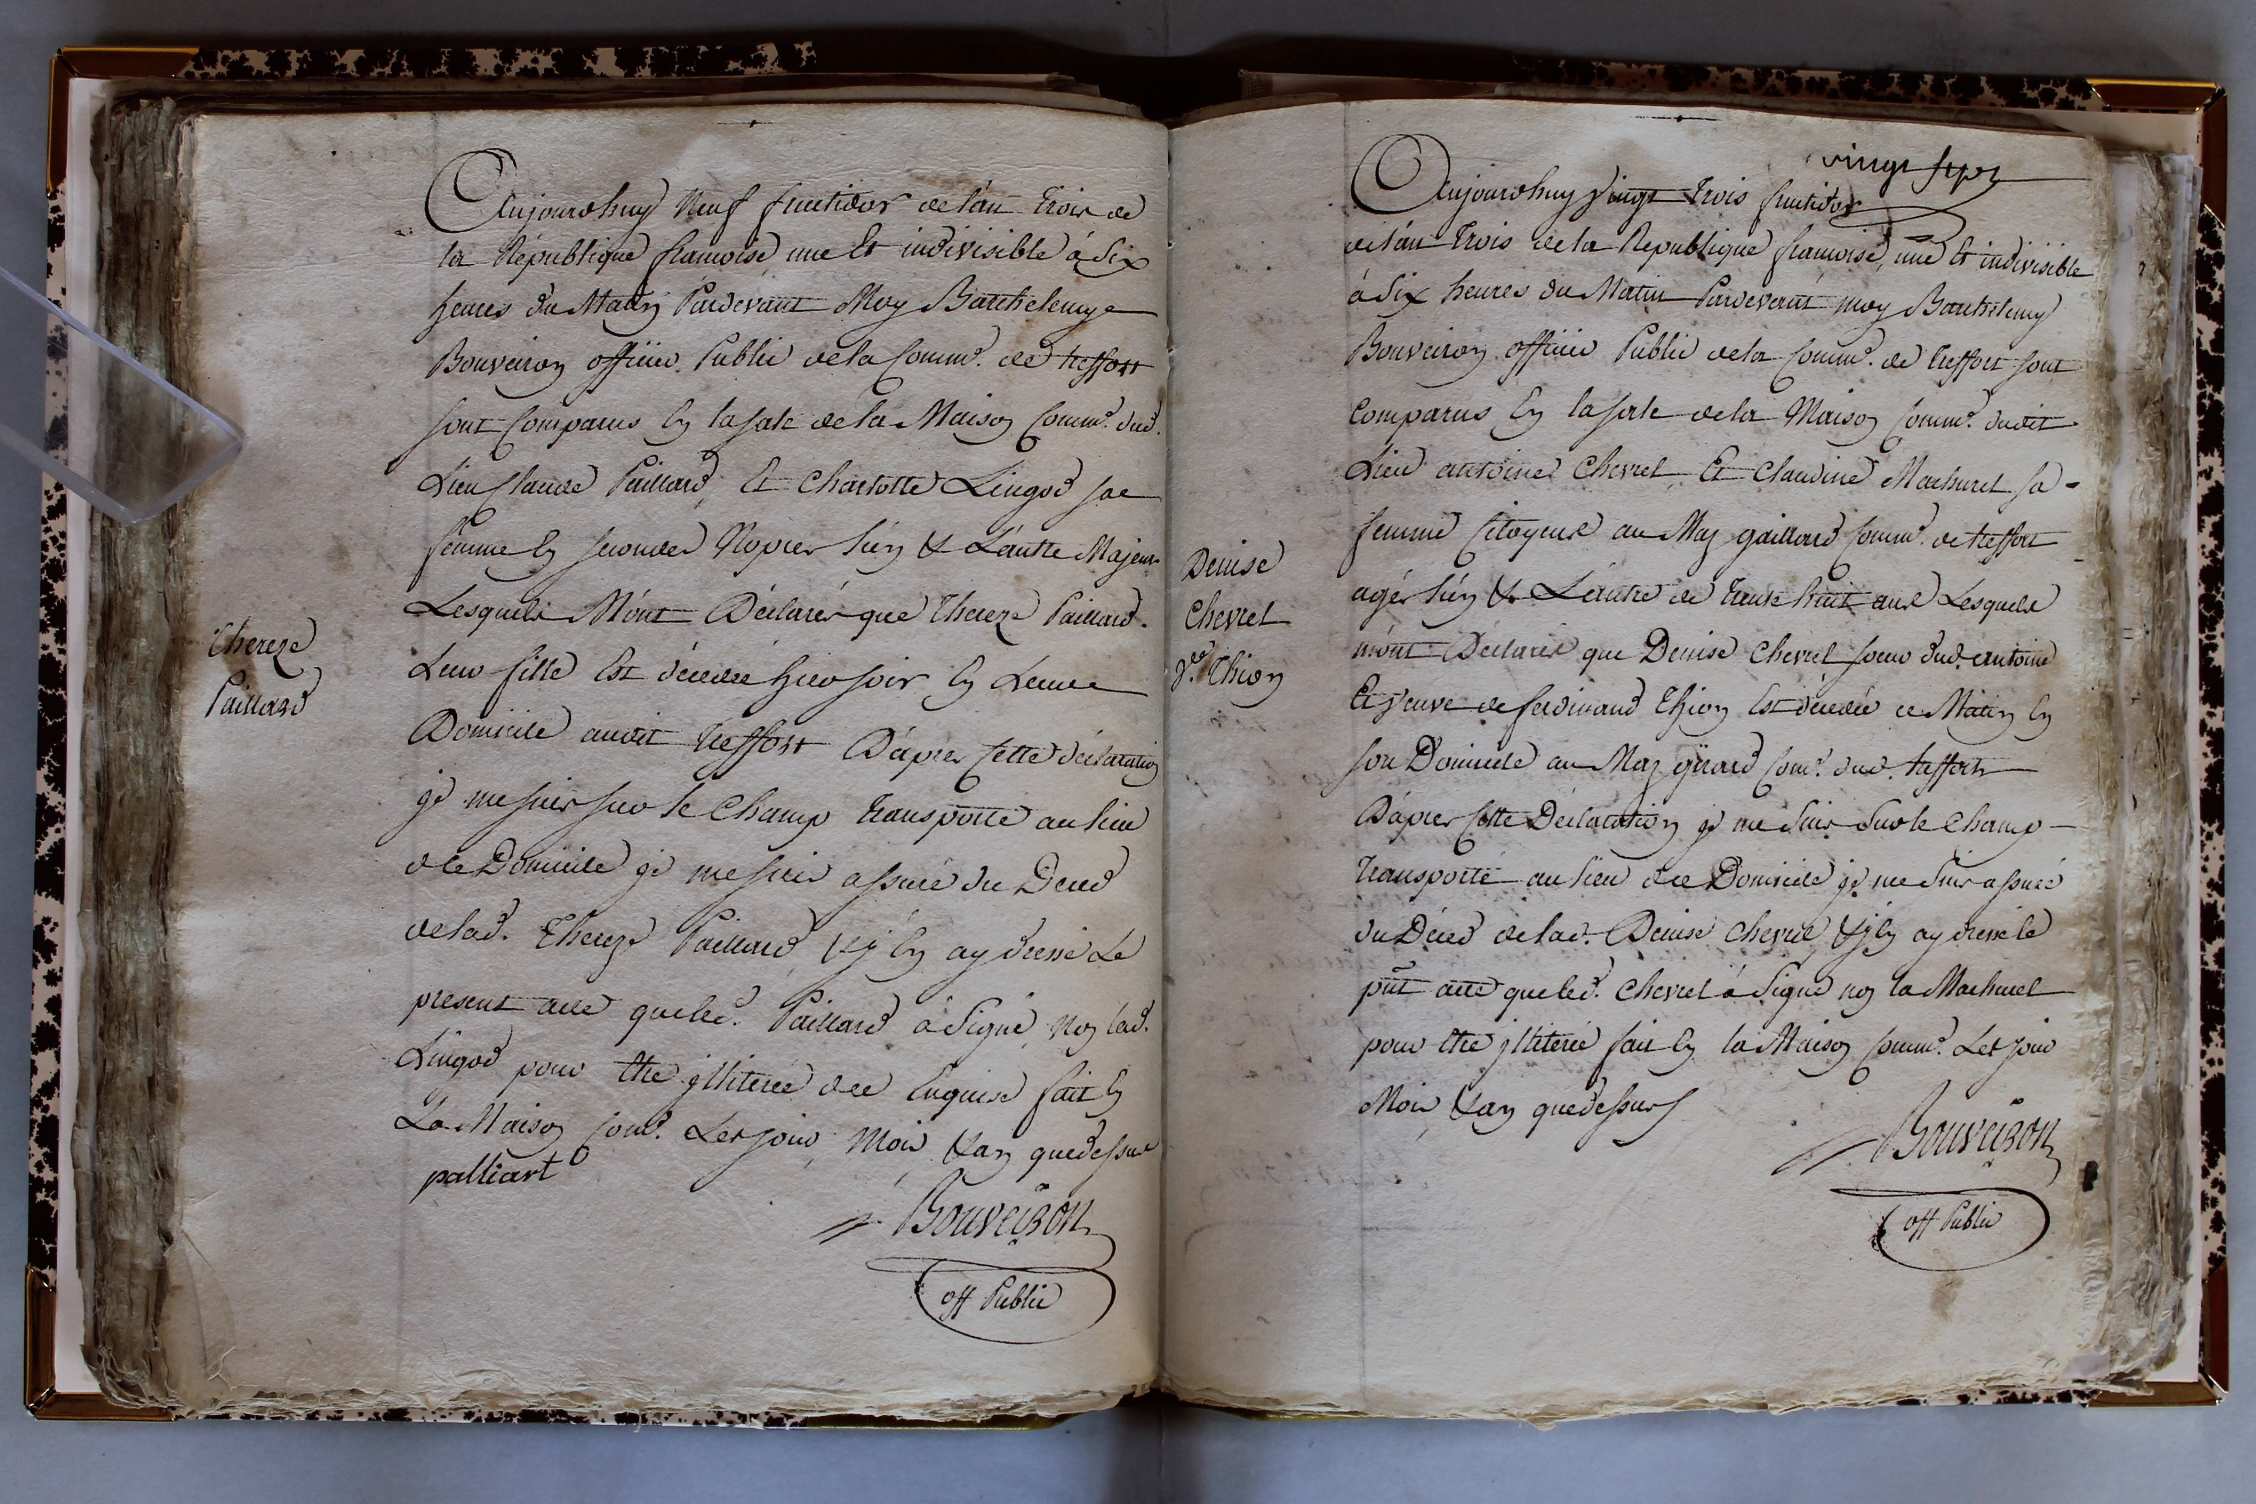 Aujourdhuy Neuf fructidor de l'an Trois de
la République francoise une Et indivisible à Six
heures du Matin Pardevant Moy Barthelemy
Bouveiron officier Public de la Comm.e de treffort
sont Comparus En la sale de la Maison Comm.e dud.
Lieu Claude Paillard, Et Charlotte Lingod sa
femme En secondes Nopces l'un & L'autre Majeurs
Lesquels M'ont Déclarés que Thereze Paillard
Leur fille Est décédée hier soir En Leur
Domicile audit treffort D'apres Cette déclaration
je me suis sur le Champ transporté au lieu
de Domicile je me suis assuré du Déced
Thereze
Paillard
de lad. Thereze Paillard & j'En ay dressé Le
présent acte que led. Paillard à Signé, Non lad.
Lingod pour Etre jlliterée de Enquise fait En
La Maison Com.e Les jour, Mois &an que dessus
palliart
Bouveiron
off Public
vingt sept
Aujourdhuy Vingt Trois fructidor
de l'an Trois de la Republique francoise, une Et indivisible
à Six heures du Matin Pardevant moy Barthelemy
Bouveiron officier Public de la Comm.e de treffort sont
Comparus En la sale de la Maison Comm.e dudit
Lieu antoine Chevret Et Claudine Machuret sa
femme Citoyens au Maz gaillard Comm.e de treffort
agés l'un & L'autre de trente huit ans Lesquels
m'ont Déclarés que Denise Chevret soeur dud. antoine
Et Veuve de ferdinand Thion Est décédée ce Matin En
son Domicile au Maz girard Com.e dud. treffort
D'apres Cette Déclaration je me Suis Sur le Champ
transporté au lieu de Domicile je me Suis assuré
du Déced de lad. Denise Chevret & j'En ay dressé le
pñt acte que led. Chevret à Signé non la Machuret
pour Etre jlliterée fait En la Maison Comm.e Les jour
Mois &an que dessus
Denise
Chevret
V.ve Thion
Bouveiron
off Public